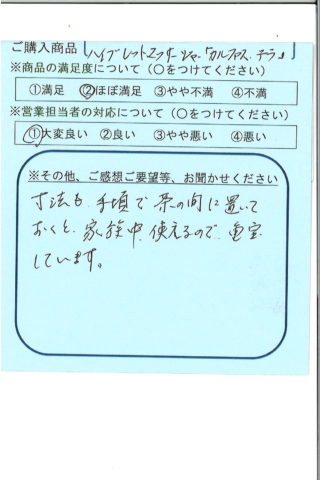 ご購入商品 ハイブレットマッサージャー「カルフロス.テラ」
※商品の満足度について（○をつけてください）
①満足 ②ほぼ満足 ③やや不満 ④不満
※営業担当者の対応について（○をつけてください）
①大変良い ②良い ③やや悪い ④悪い
※その他、ご感想ご要望等、お聞かせください
寸法も、手頃で茶の間に置いて
おくと、家族中、使えるので、重宝
しています。